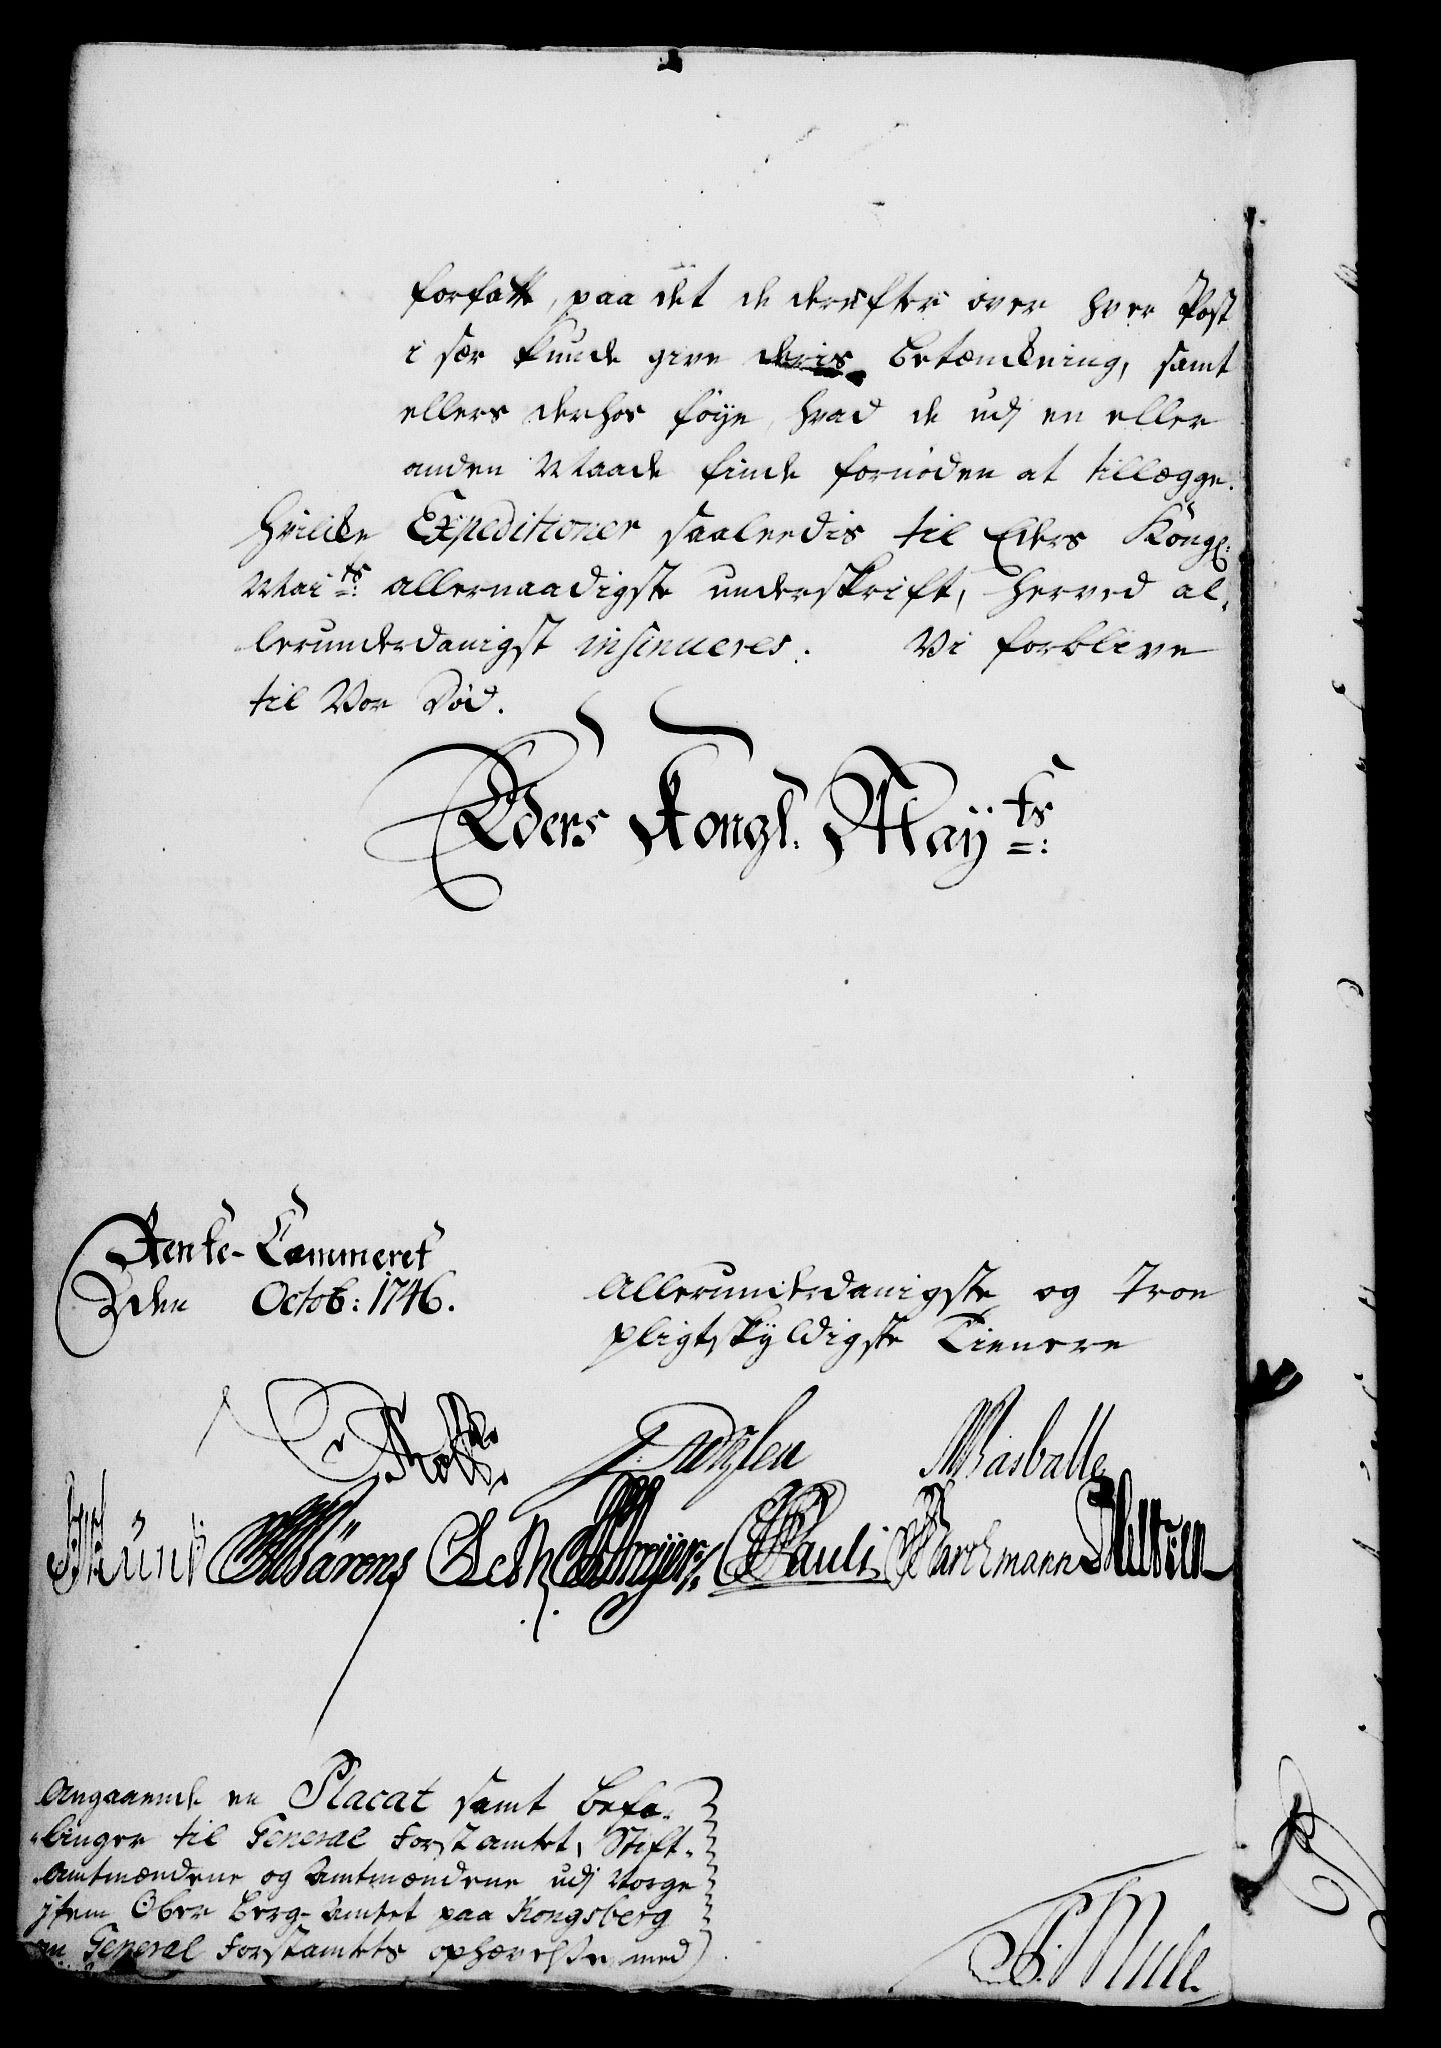 forfatte, paa det de derefter över hver Post
i sær kunde give deris betænkning, samt
ellers derhos föye, hvad de udj en eller
anden Maade finde fornöden at tillægge.
Hvilke Expeditioner saaleedis til Eders Kongl:
Mai:ts allernaadigste underskrift, herved al,
lerunderdanigst insinueres. Vi forblive
til Vor Död.
Eders Kongl. Mayts:
Rente-Cammeret
Den Octob: 1746.
Allerunderdanigste og Troe
pligtskyldigste Tienere
Holst
Wasballe
Künd Bärens Pauli Barchmann Meltzen
Angaaende en Placat samt befa-
linger til General Forst amtet, Stift-
Amtmændene og Amtmændene udj Norge
jtem Ober Berg-Amtet paa Kongsberg
om General Forstamtets ophævelse med
Mule